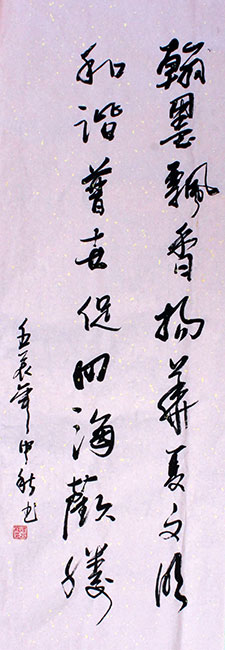 翰墨飄香扬華夏文明
和谐普世促四海歡腾
壬辰年中秋书